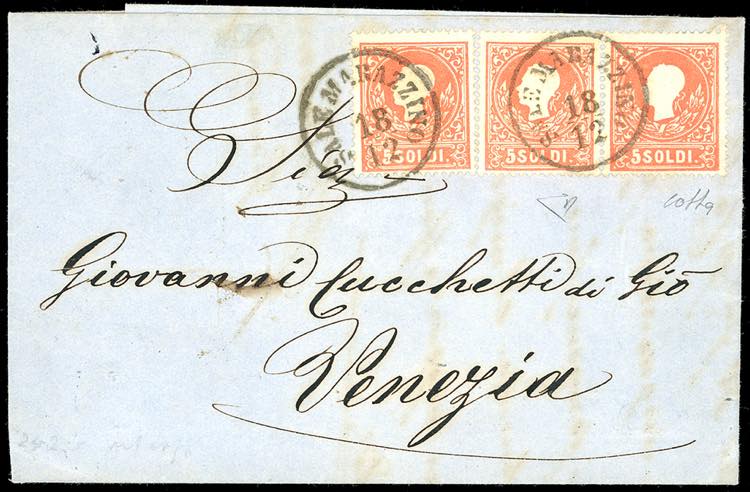 S. ALE MARAZZINO
18
12
S. LE MARAZZINO
18
12
5 SOLDI.
5 SOLDI.
5 SOLDI.
Sig.
cotta
Giovanni Cucchetti di Giō
Venezia